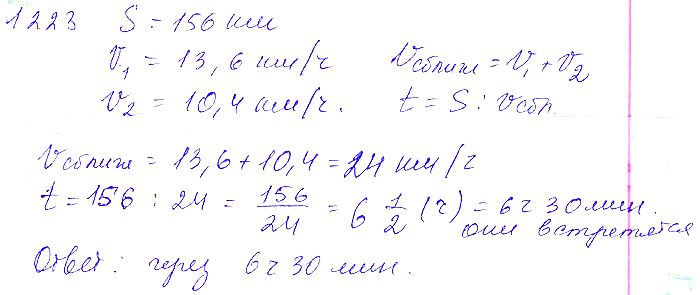 1223 S = 156 км
V₁ = 13,6 км/ч Vсближ = V₁ + V₂
V₂ = 10,4 км/ч. t = S : Vсбл.
Vсближ = 13,6 + 10,4 = 24 км/ч
t = 156 : 24 = 156/24 = 6 1/2 (ч) = 6 ч 30 мин.
они встретятся
Ответ: через 6 ч 30 мин.